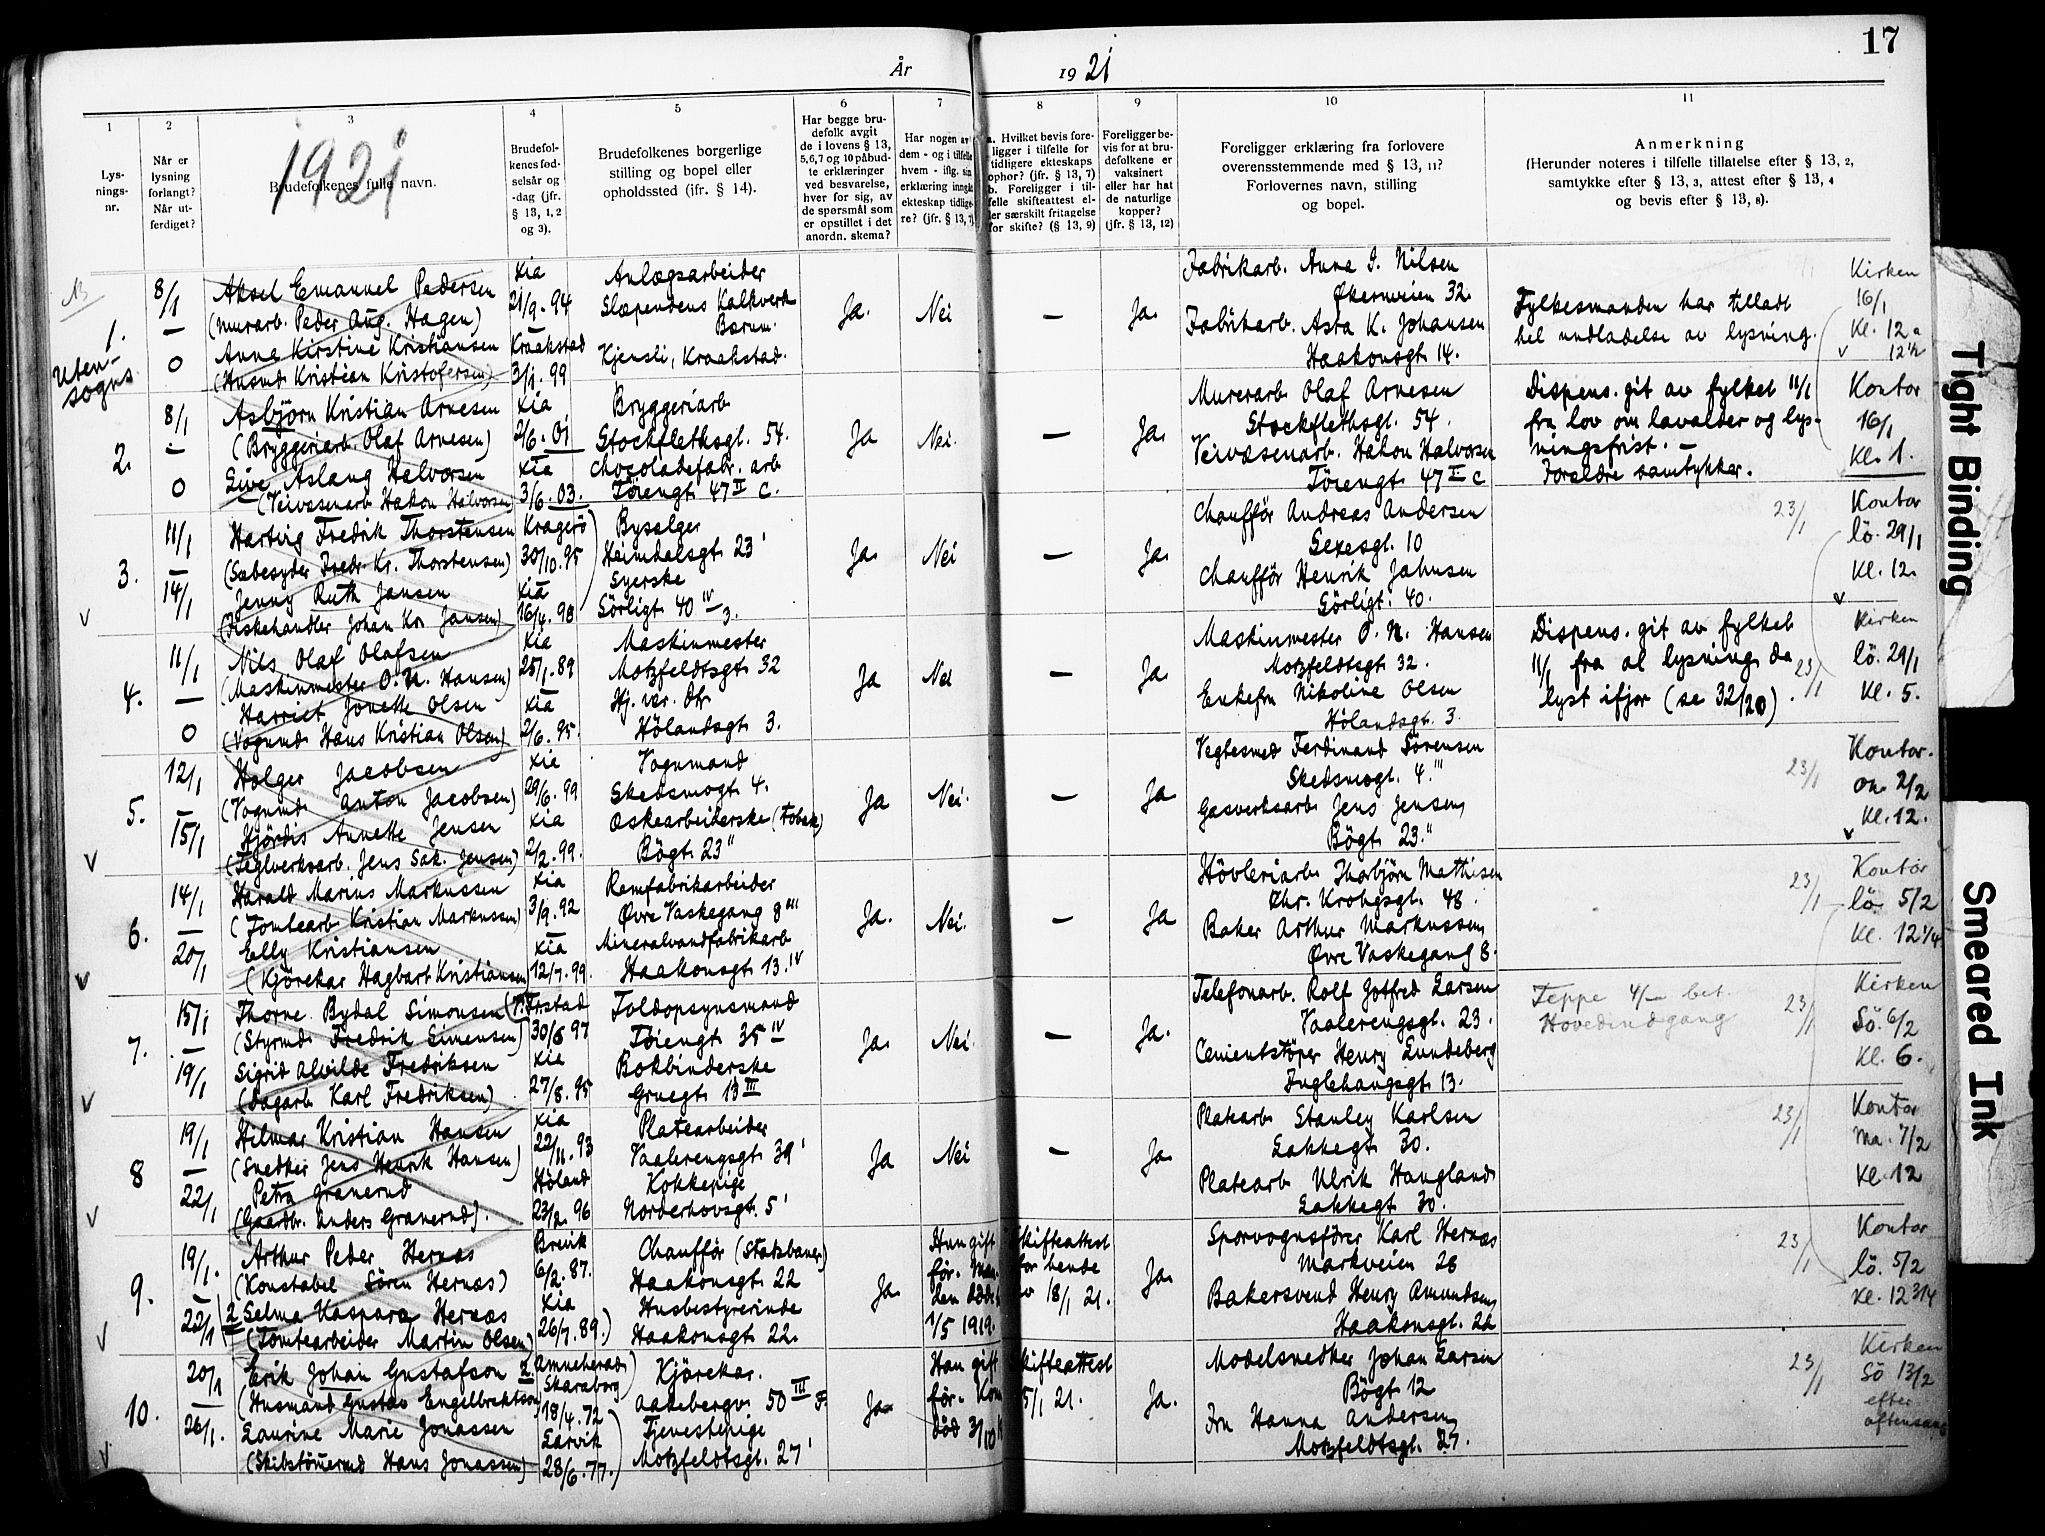 17
År 1921
1
2
3
4
5
6
7
8
9
10
11
Lys-
nings-
nr.
Når er
lysning
forlangt?
Når ut-
ferdiget?
1921
Brudefolkenes fulle navn.
Brudefol-
kenes fød-
selsår og
-dag (jfr.
§ 13, 1, 2
og 3).
Brudefolkenes borgerlige
stilling og bopel eller
opholdssted (jfr. § 14).
Har begge bru-
defolk avgit
de i lovens § 13,
5,6,7 og 10 påbud-
te erklæringer
ved besvarelse,
hver for sig, av
de spørsmål som
er opstillet i det
anordn. skema?
Har nogen av
dem - og i tilfelle
hvem - iflg. sin
erklæring inngått
ekteskap tidlige-
re? (jfr. § 13, 7)
a. Hvilket bevis fore-
ligger i tilfelle for
tidligere ekteskaps
ophør? (jfr. § 13, 7)
b. Foreligger i til-
felle skifteattest el-
ler særskilt fritagelse
for skifte? (§ 13, 9)
Foreligger be-
vis for at bru-
defolkene er
vaksinert
eller har hat
de naturlige
kopper?
(jfr. § 13, 12)
Foreligger erklæring fra forlovere
overensstemmende med § 13, 11?
Forlovernes navn, stilling
og bopel.
Anmerkning
(Herunder noteres i tilfelle tillatelse efter § 13, 2,
samtykke efter § 13, 3, attest efter § 13, 4
og bevis efter § 13, 8).
1.
Uten-
sogns
8/1
—
0
Aksel Emanuel Pedersen
(Murarb. Peder Aug. Hagen)
Anna Kirstine Kristiansen
(Husmd. Kristian Kristofersen)
Kia
21/9. 94
Kraakstad
3/1. 99
Anlægsarbeider
Slæpendens Kalkverk
Bærum.
Kjensli, Kraakstad.
Ja.
Nei
—
Ja.
Fabrikarb. Anna I. Nilsen
Økernveien 32.
Fabrikarb. Asta K. Johansen
Haakonsgt. 14.
Fylkesmanden har tilladt
hel undladelse av lysning.
Kirken
16/1
Kl. 12 a
12½
2.
8/1
—
0
Asbjörn Kristian Arnesen
(Bryggeriarb. Olaf Arnesen)
Live Aslaug Halvorsen
(Veivæsenarb. Hakon Halvorsen)
Kia
2/6. 01
Kia
3/6. 03.
Bryggeriarb
Stockflethsgt. 54.
Chocoladefabr. arb
Töiengt. 47 II C.
Ja
Nei.
—
Ja.
Murerarb Olaf Arnesen
Stockflethsgt. 54.
Veivæsenarb. Hakon Halvorsen
Töiengt. 47 II C
Dispens. git av fylket 11/1
fra lov om lavalder og lys-
ningsfrist. —
Forældre samtykker.
Kontor
16/1
Kl. 1.
3.
11/1
—
14/1
Hartvig Fredrik Thorstensen
(Sæbesyder Fredr. Kr. Thorstensen)
Jenny Ruth Jansen
(Fiskehandler Johan Kr. Jansen)
Kragerö
30/10. 95
Kia
16/4. 98
Bysælger
Heimdalsgt. 23 I
Syerske
Sörligt. 40 IV 3.
Ja.
Nei
—
Ja.
Chaufför Andreas Andersen
Sexesgt. 10
Chaufför Henrik Jahnsen
Sörligt. 40.
23/1
Kontor
lö. 29/1
Kl. 12.
4.
11/1
—
0
Nils Olaf Olafsen
(Maskinmester O. N. Hansen)
Harriet Jonette Olsen
(Vognmd. Hans Kristian Olsen)
Kia
25/1. 89
Kia
2/6. 95.
Maskinmester
Motzfeldtsgt. 32
Hj. vær. Dtr
Hölandsgt. 3.
Ja
Nei
—
Ja.
Maskinmester O. N. Hansen
Motzfeldtsgt. 32.
Enkefru Nikoline Olsen
Hölandsgt. 3.
Dispens. git av fylket
11/1 fra al lysning, da
lyst ifjor (se 32/20).
23/1
Kirken
lö. 29/1
Kl. 5.
5.
12/1
—
15/1
Holger Jacobsen
(Vognmd. Anton Jacobsen)
Hjördis Annette Jensen
(Teglverksarb. Jens Sak. Jensen)
Kia
29/6. 99
Kia
2/2. 99.
Vognmand
Skedsmogt. 4.
Æskearbeiderske (Tobak)
Bögt. 23 II
Ja
Nei.
—
Ja
Vegtesmed Ferdinand Sörensen
Skedsmogt. 4. III
Gasverksarb. Jens Jensen
Bögt. 23. II
23/1
Kontor.
on. 2/2
Kl. 12.
6.
14/1
—
20/1
Harald Marius Markussen
(Tomtearb. Kristian Markussen)
Elly Kristiansen
(Kjörekar Hagbart Kristiansen)
Kia
3/9. 92
Kia
12/7. 99.
Remfabrikarbeider
Övre Vaskegang 8 III
Mineralvandfabrikarb
Haakonsgt. 13. IV
Ja.
Nei.
—
Ja
Hövleriarb. Thorbjörn Mathisen
Chr. Krohgsgt. 48.
Baker Arthur Markussen,
Övre Vaskegang 8.
23/1
Kontor
lö. 5/2
Kl. 12 1/4
7.
15/1
—
19/1
Thorne Bydal Simonsen
(Styrmd. Fredrik Simonsen)
Sigrid Alvilde Fredriksen
(Dagarb. Karl Fredriksen)
Fr.stad
30/6 97
Kia
27/8. 95
Toldopsynsmand
Töiengt. 35 IV
Bokbinderske
Gruegt. 13 III
Ja.
Nei.
—
Ja.
Telefonarb. Rolf Gotfred Larsen
Vaalerengsgt. 23.
Cementstöper Henry Lundeberg
Fuglehaugsgt. 13.
Teppe 4/— bet.
Hovedindgang
23/1
Kirken
Sö. 6/2
Kl. 6.
8
19/1
—
22/1
Hilmar Kristian Hansen
(Snedker Jens Henrik Hansen)
Petra Granerud
(Gaardbr. Anders Granerud).
Kia
22/11. 93
Höland
23/2. 96
Platearbeider
Vaalerengsgt. 39 I
Kokkepige
Norderhovsgt. 5 I
Ja
Nei
—
Ja.
Platearb. Stanley Karlsen
Lakkegt. 30.
Platearb. Ulrik Haugland
Lakkegt. 30.
23/1
Kontor
ma. 7/2
Kl. 12
9.
19/1.
—
22/1
Arthur Peder Hernæs
(Konstabel Sören Hernæs)
2 Selma Kaspara Hernæs
(Tomtearbeider Martin Olsen)
Brevik
6/2. 87.
Kia
26/7. 89.
Chaufför (Statsbaner)
Haakonsgt. 22
Husbestyrerinde
Haakonsgt. 22.
Ja.
Hun gift
för. Man-
den död
1/5 1919.
Skifteattest
for hende
av 18/1 21.
Ja.
Sporvognsförer Karl Hernæs
Markveien 28
Bakersvend Henry Amundsen
Haakonsgt. 22
23/1
Kontor
lö. 5/2
Kl. 12 3/4
10.
20/1
—
26/1.
Erik Johan Gustafson 2.
(Husmand Gustav Engelbrektson)
Laurine Marie Jonassen
(Skibstömmermd. Hans Jonassen)
Amneherad
Skaraborg
18/4. 72
Larvik
28/6. 77.
Kjörekar.
Aakebergv. 50 III F.
Tjenestepige
Motzfeldtsgt. 27 I
Ja
Han gift
för. Kon
död 3/10
Skifteattest
5/1 21.
Ja.
Modelsnedker Johan Larsen
Bögt. 12
Fru Hanna Andersen,
Motzfeldtsgt. 27.
23/1
Kirken
Sö 13/2
efter
aftensang
Tight Binding
Smeared Ink